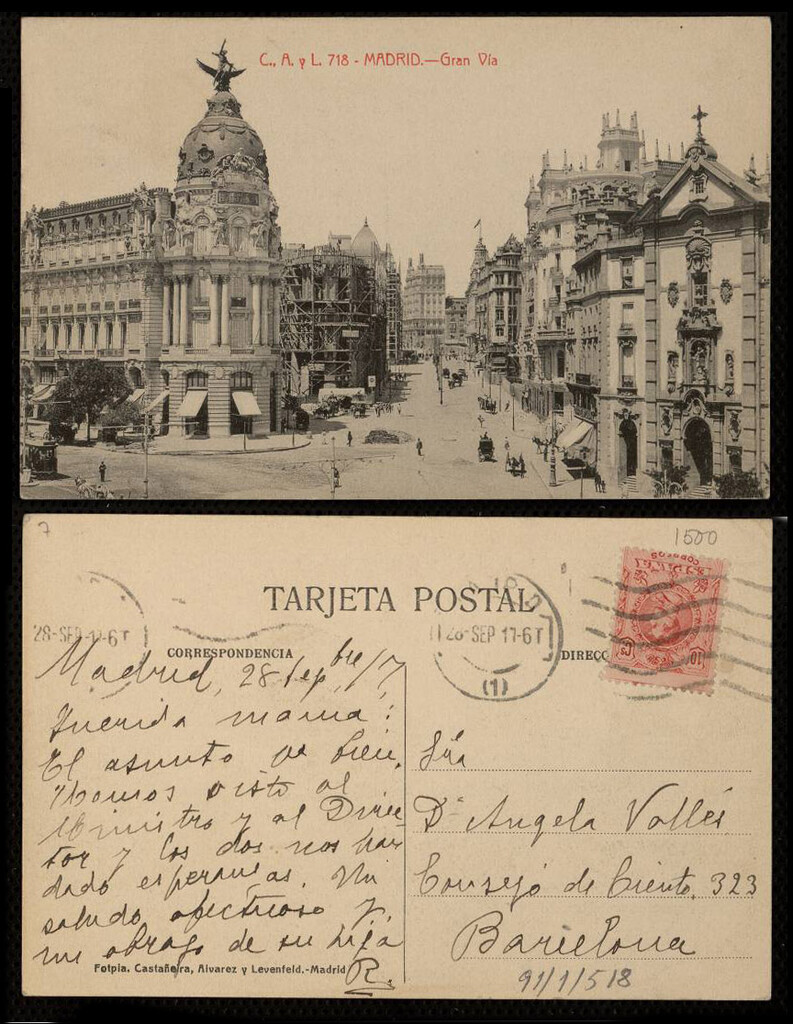 C., A. y L. 718 - MADRID.—Gran Vía
7
1500
TARJETA POSTAL
28-SEP-17-6T
28-SEP 17-6T
(1)
CORRESPONDENCIA
DIRECC
CORREOS
Madrid, 28 Sepbre/17
Querida mama:
El asunto va bien.
Hemos visto al
Ministro y al Direc-
tor y los dos nos han
dado esperanzas. Un
saludo afectuoso y
un abrazo de su hija
R.
Sra
Dª Angela Vallés
Consejo de Ciento, 323
Barcelona
91/1/518
Fotpia. Castañeira, Alvarez y Levenfeld.-Madrid